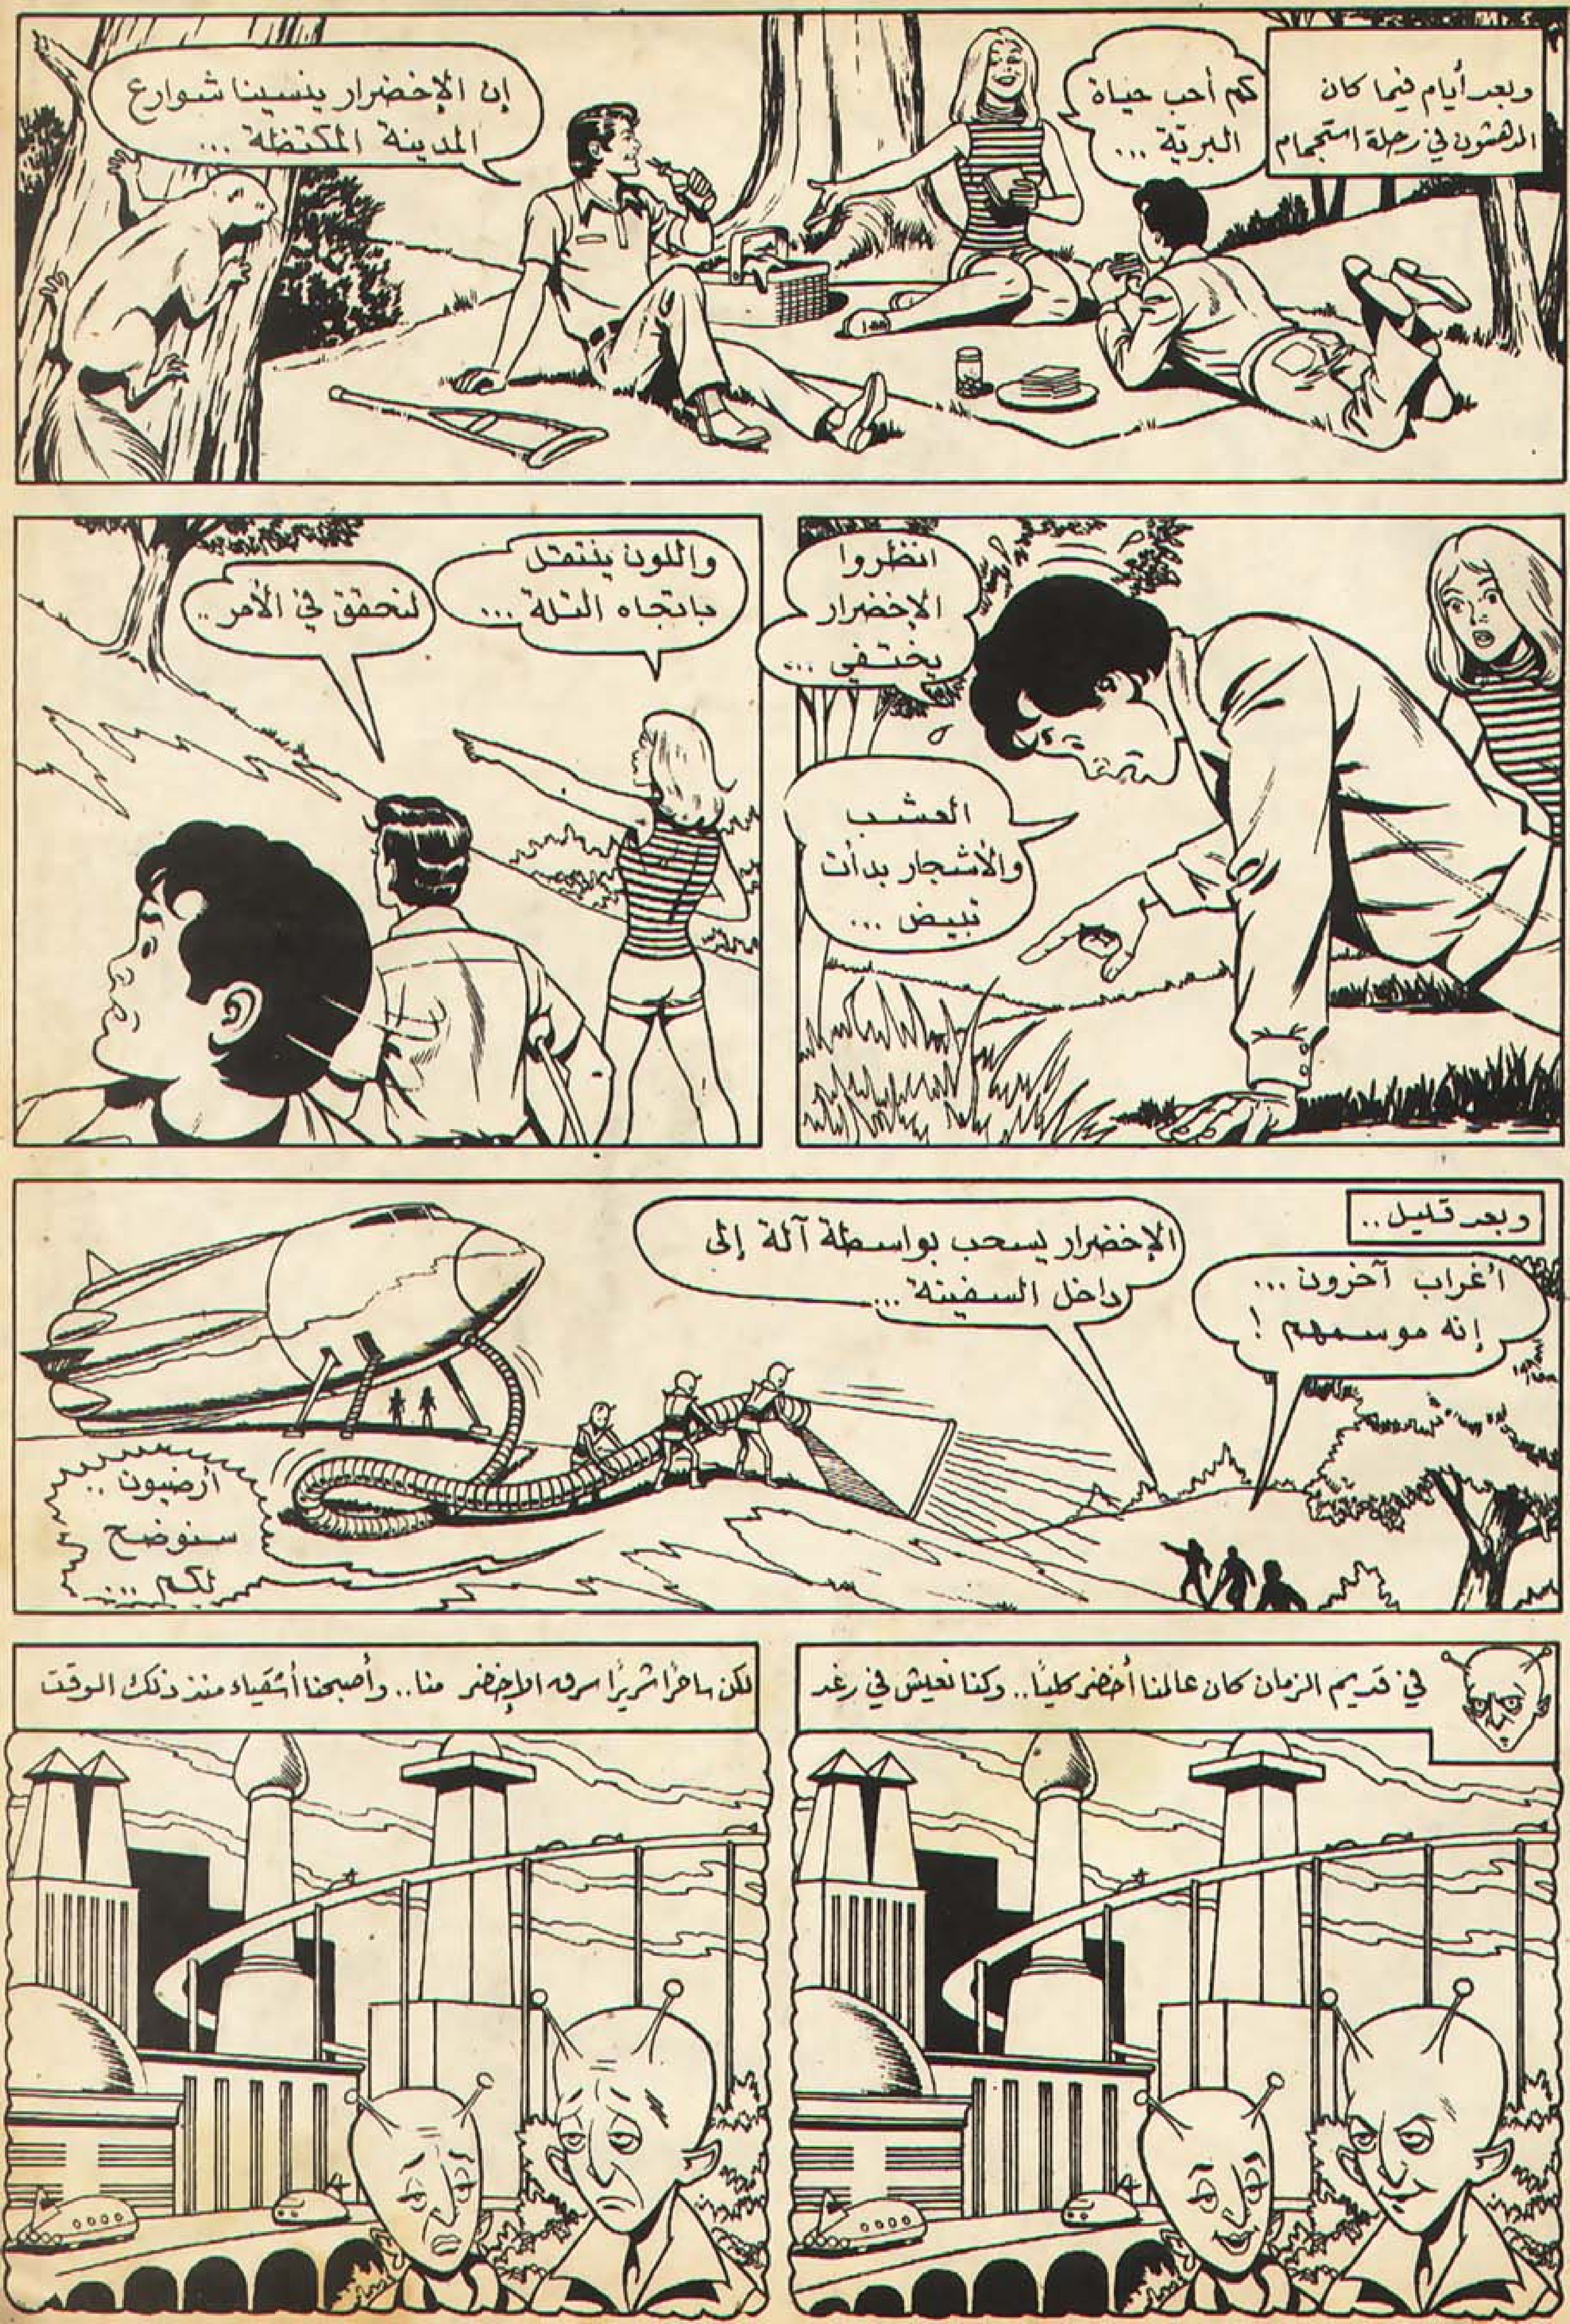 وبعد أيام فيما كان
المدهشون في رحلة استجمام
كم أحب حياة
البرية ...
إن الإخضرار ينسينا شوارع
المدينة المكتظة ...
انظروا
الإخضرار
يختفي ...
العشب
والأشجار بدأت
تبيض ...
واللون ينتقل
باتجاه التلة ...
لنحقق في الأمر ..
وبعد قليل ..
أغراب آخرون ...
إنه موسمهم !
الإخضرار يسحب بواسطة آلة إلى
داخل السفينة ...
أرضيون ..
سنوضح
لكم ...
في قديم الزمان كان عالمنا أخضر كليًا .. وكنا نعيش في رغد
لكن ساحرًا شريرًا سرق الإخضر منا .. وأصبحنا أشقياء منذ ذلك الوقت